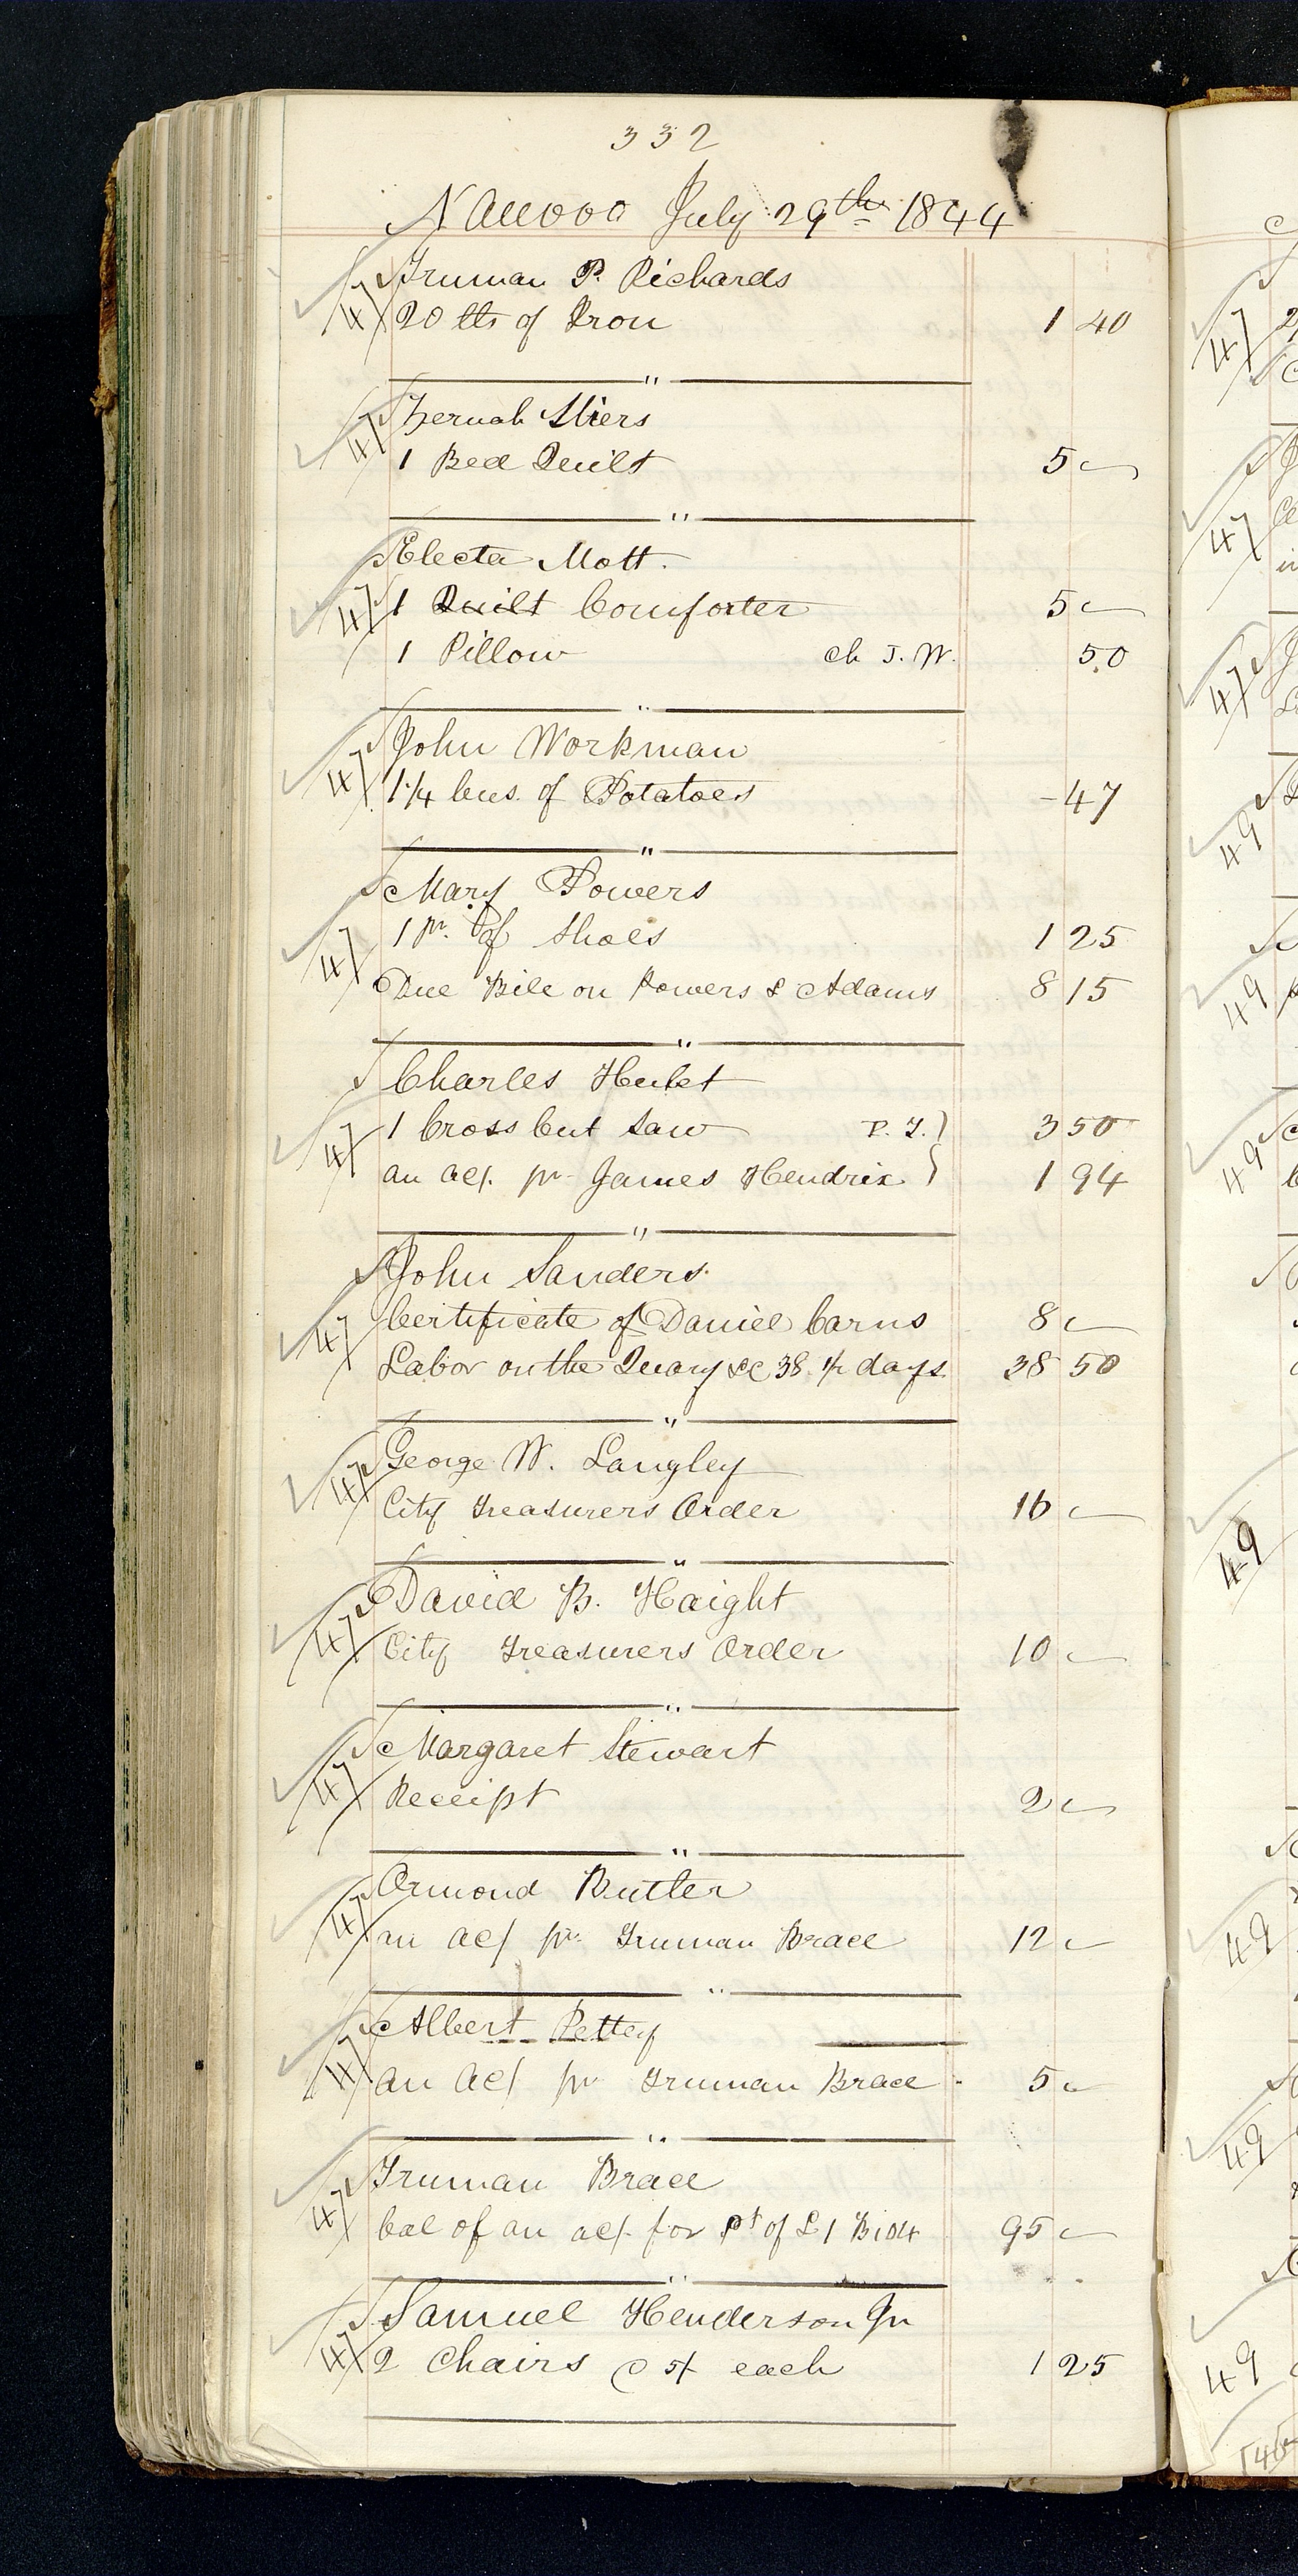 332
Nauvoo July 29th 1844
47 Truman P. Richards
20 lbs of Iron 1 40
"
47 Zeruah Stiers
1 Bed Quilt 5 –
"
Electa Mott.
47 1 Quilt Comforter 5 –
1 Pillow ch J. W. 50
"
47 John Workman
1 1/4 bus. of Potatoes - 47
"
Mary Powers
47 1 pr. of Shoes 1 25
Due Bill on Powers & Adams 8 15
"
Charles Hulet
47 1 Cross Cut Saw P. T. } 3 50
an ac/. pr James Hendrix } 1 94
"
John Sanders
47 Certificate of Daniel Carns 8 –
Labor on the Quary &c 38 1/2 days 38 50
"
47 George W. Langley
City Treasurers Order 16 –
"
47 David B. Haight
City Treasurers Order 10 –
"
47 Margaret Stewart
Receipt 2 –
"
47 Ormond Butler
an ac/ pr. Truman Brace 12 –
"
47 Albert Pettey
an ac/ pr Truman Brace - 5 –
"
47 Truman Brace
bal of an ac/. for pt of L 1 B 104 95 –
"
47 Samuel Henderson Jr
2 Chairs @ 5/ each 1 25
47
47
47
49
49
49
49
49
49
49